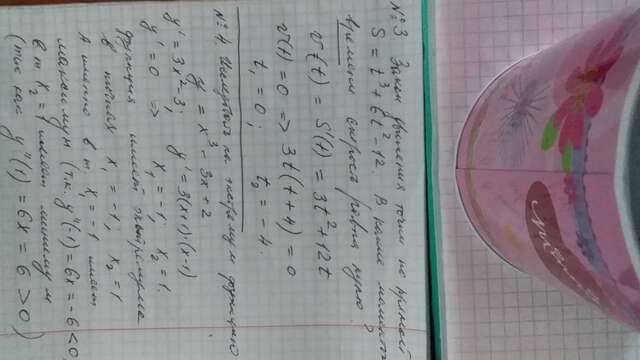 №3 Закон движения точки по прямой
S = t³ + 6t² - 12. В какие моменты
времени скорость равна нулю?
v(t) = S'(t) = 3t² + 12t
v(t) = 0 => 3t(t+4) = 0
t₁ = 0; t₂ = -4.
№4 Исследовать на экстремум функцию
y = x³ - 3x + 2
y' = 3x² - 3; y' = 3(x+1)·(x-1)
y' = 0 => x₁ = -1; x₂ = 1.
функция имеет экстремумы
в точках x₁ = -1; x₂ = 1
А именно в т. x₁ = -1 имеем
максимум (т.к. y''(-1) = 6x = -6 < 0,
в т. x₂ = 1 имеем минимум
(так как y''(1) = 6x = 6 > 0)